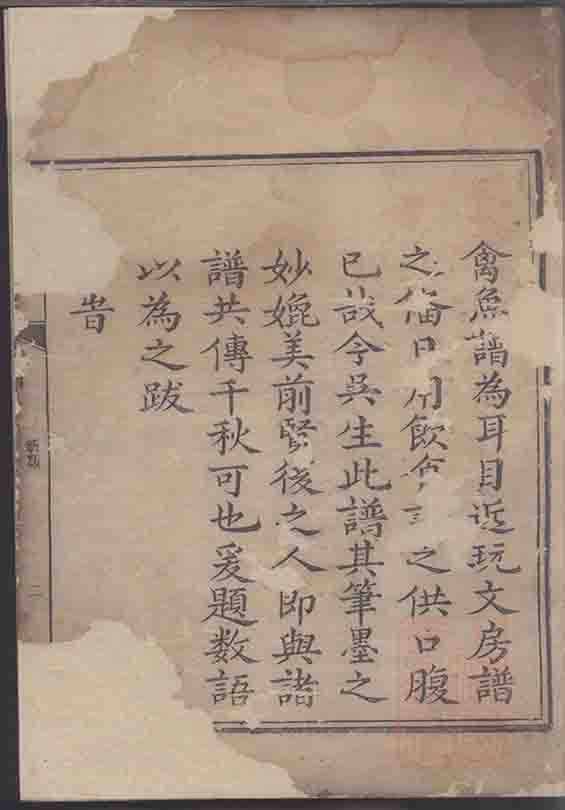 禽魚譜為耳目近玩文房譜
之備日用飲食 之供口腹
已哉今吳生此譜其筆墨之
妙媲美前賢後之人即與諸
譜共傳千秋可也爰題數語
以為之跋
旹
二